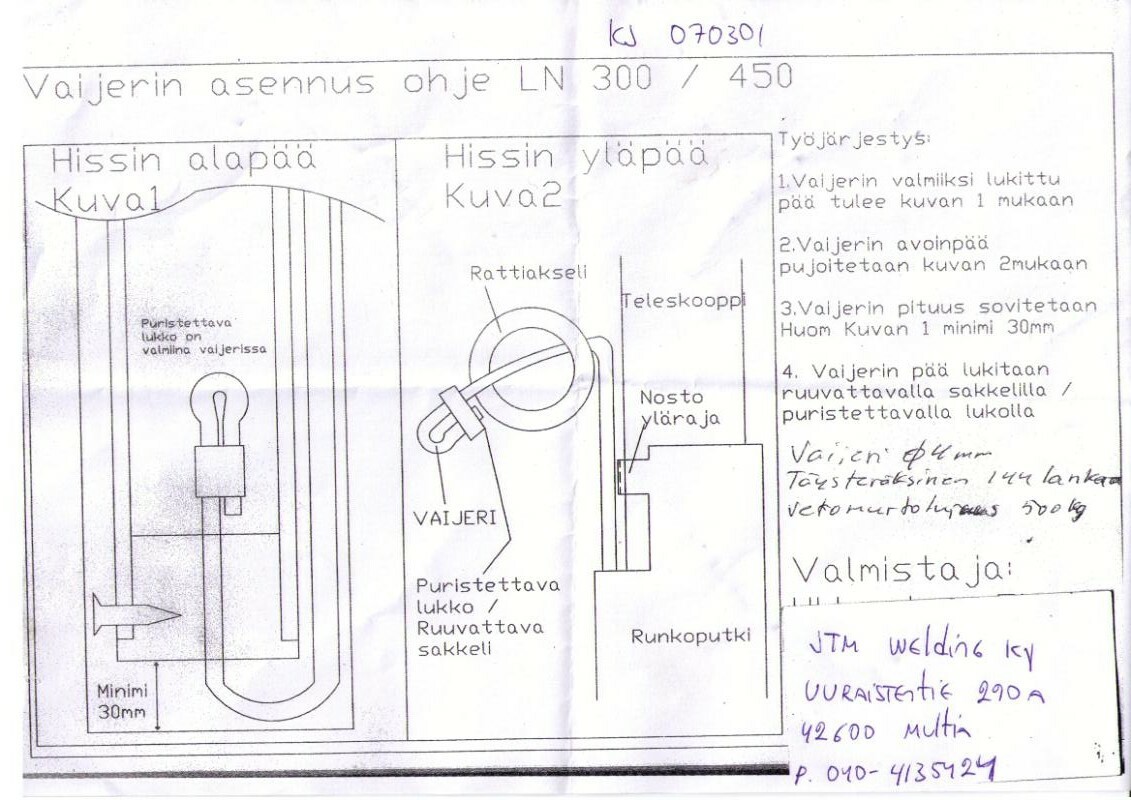 KJ 070301
Vaijerin asennus ohje LN 300 / 450
Hissin alapää
Kuva1
Puristettava
lukko on
valmiina vaijerissa
Minimi
30mm
Hissin yläpää
Kuva2
Rattiakseli
Teleskooppi
Nosto
yläraja
VAIJERI
Puristettava
lukko /
Ruuvattava
sakkeli
Runkoputki
Työjärjestys:
1.Vaijerin valmiiksi lukittu
pää tulee kuvan 1 mukaan
2.Vaijerin avoinpää
pujoitetaan kuvan 2mukaan
3.Vaijerin pituus sovitetaan
Huom Kuvan 1 minimi 30mm
4. Vaijerin pää lukitaan
ruuvattavalla sakkelilla /
puristettavalla lukolla
Vaijeri ϕ4mm
Täysteräksinen 144 lankaa
vetomurtolujuus 500kg
Valmistaja:
JTM Welding Ky
UURAISTENTIE 290 A
42600 Multia
P. 040-4135424